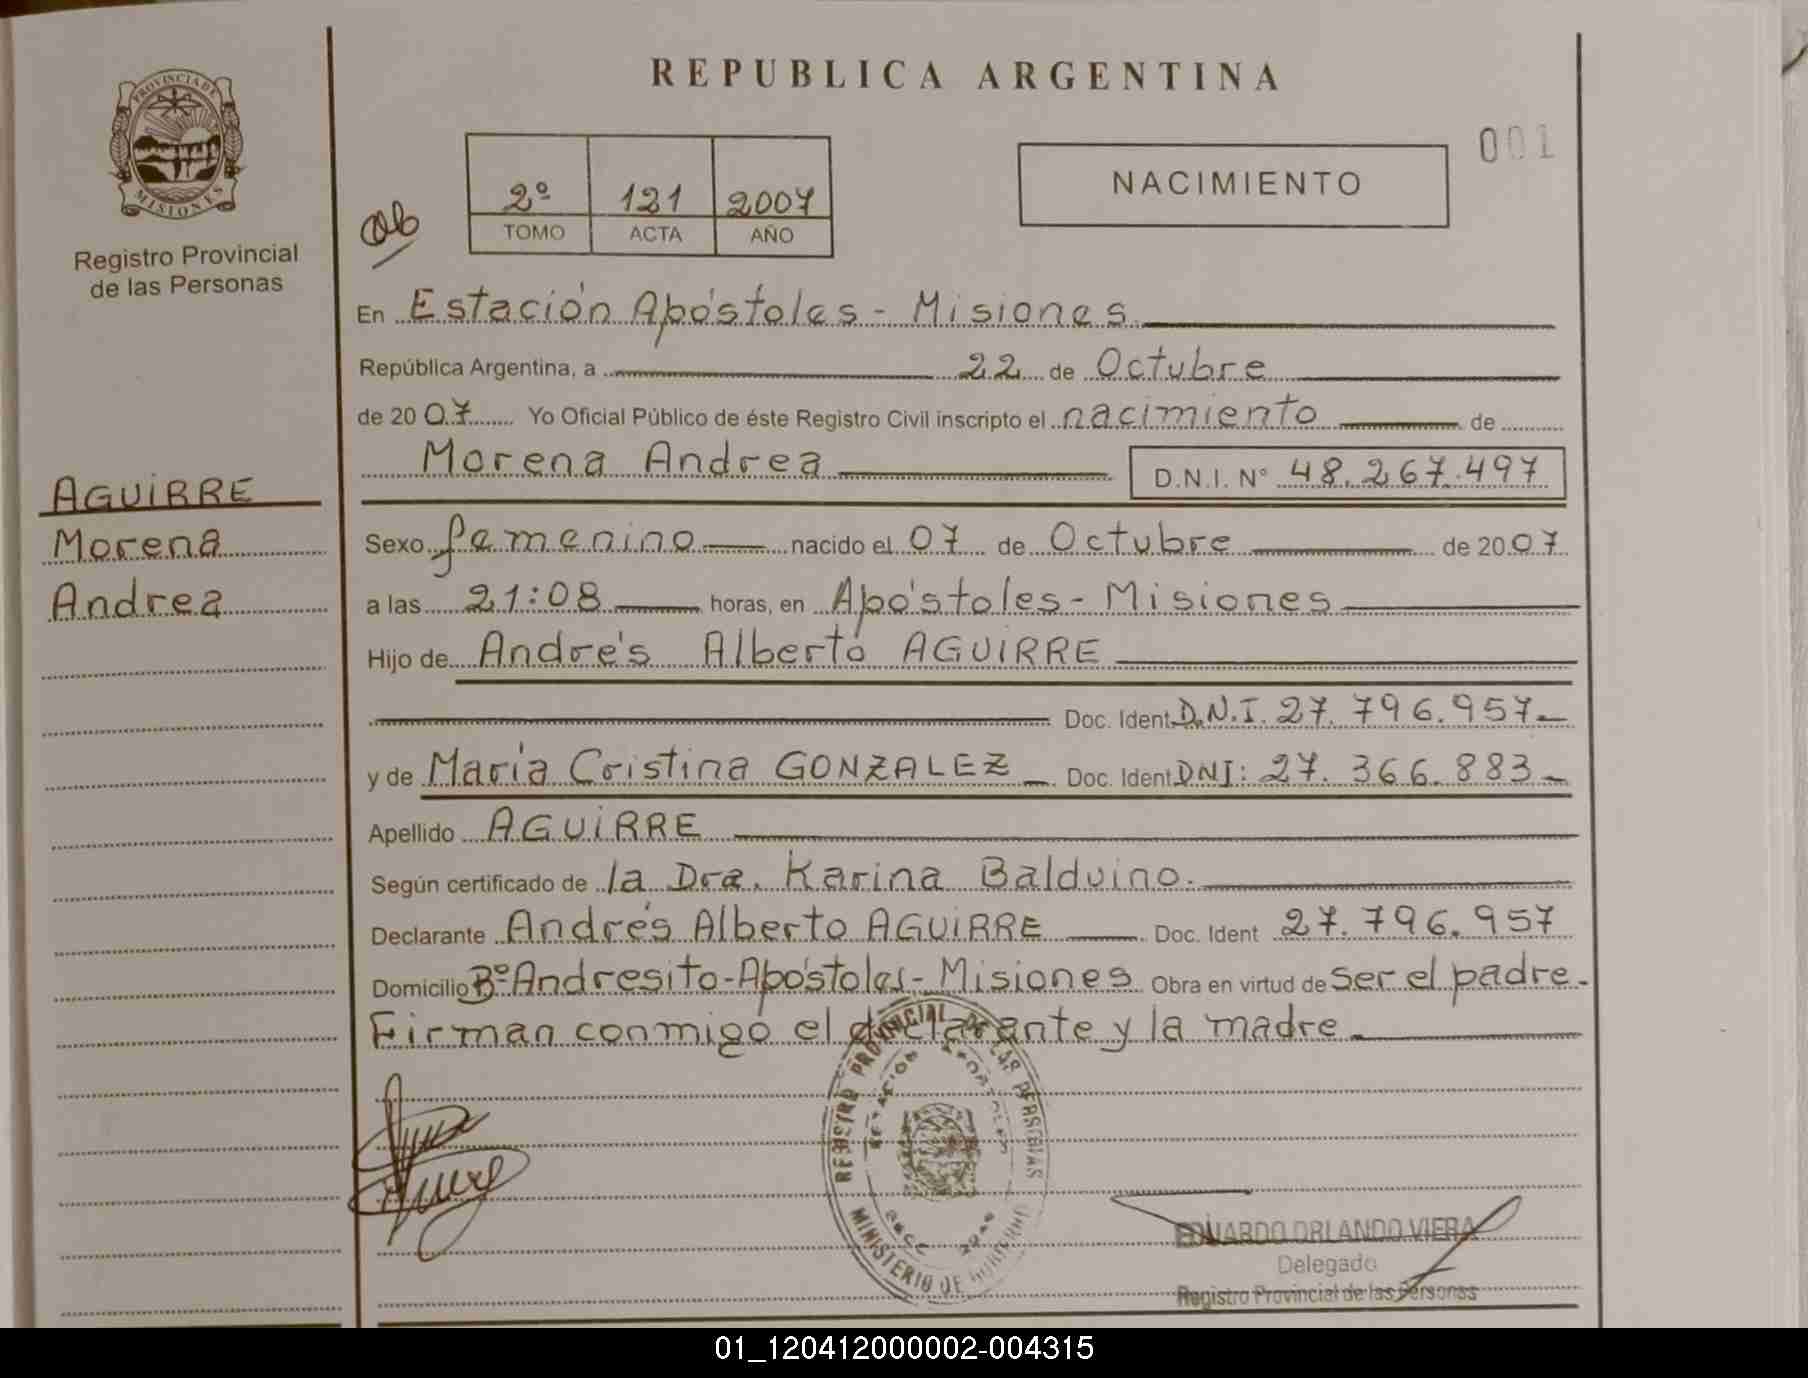 REPUBLICA ARGENTINA
PROVINCIA DE
MISIONES
Registro Provincial
de las Personas
001
NACIMIENTO
2º 121 2007
TOMO ACTA AÑO
En Estación Apóstoles - Misiones
República Argentina, a 22 de Octubre
de 20 07 Yo Oficial Público de éste Registro Civil inscripto el nacimiento de
Morena Andrea D.N.I. Nº 48.267.497
AGUIRRE
Morena
Andrea
Sexo femenino nacido el 07 de Octubre de 20 07
a las 21:08 horas, en Apóstoles - Misiones
Hijo de Andrés Alberto AGUIRRE
Doc. Ident D.N.I. 27.796.957
y de María Cristina GONZALEZ Doc. Ident DNI: 27.366.883
Apellido AGUIRRE
Según certificado de la Dra. Karina Balduino.
Declarante Andrés Alberto AGUIRRE Doc. Ident 27.796.957
Domicilio Bº Andresito - Apóstoles - Misiones Obra en virtud de ser el padre.
Firman conmigo el declarante y la madre
REGISTRO PROVINCIAL DE LAS PERSONAS
MINISTERIO DE GOBIERNO
EDUARDO ORLANDO VIERA
Delegado
Registro Provincial de las Personas
01_120412000002-004315